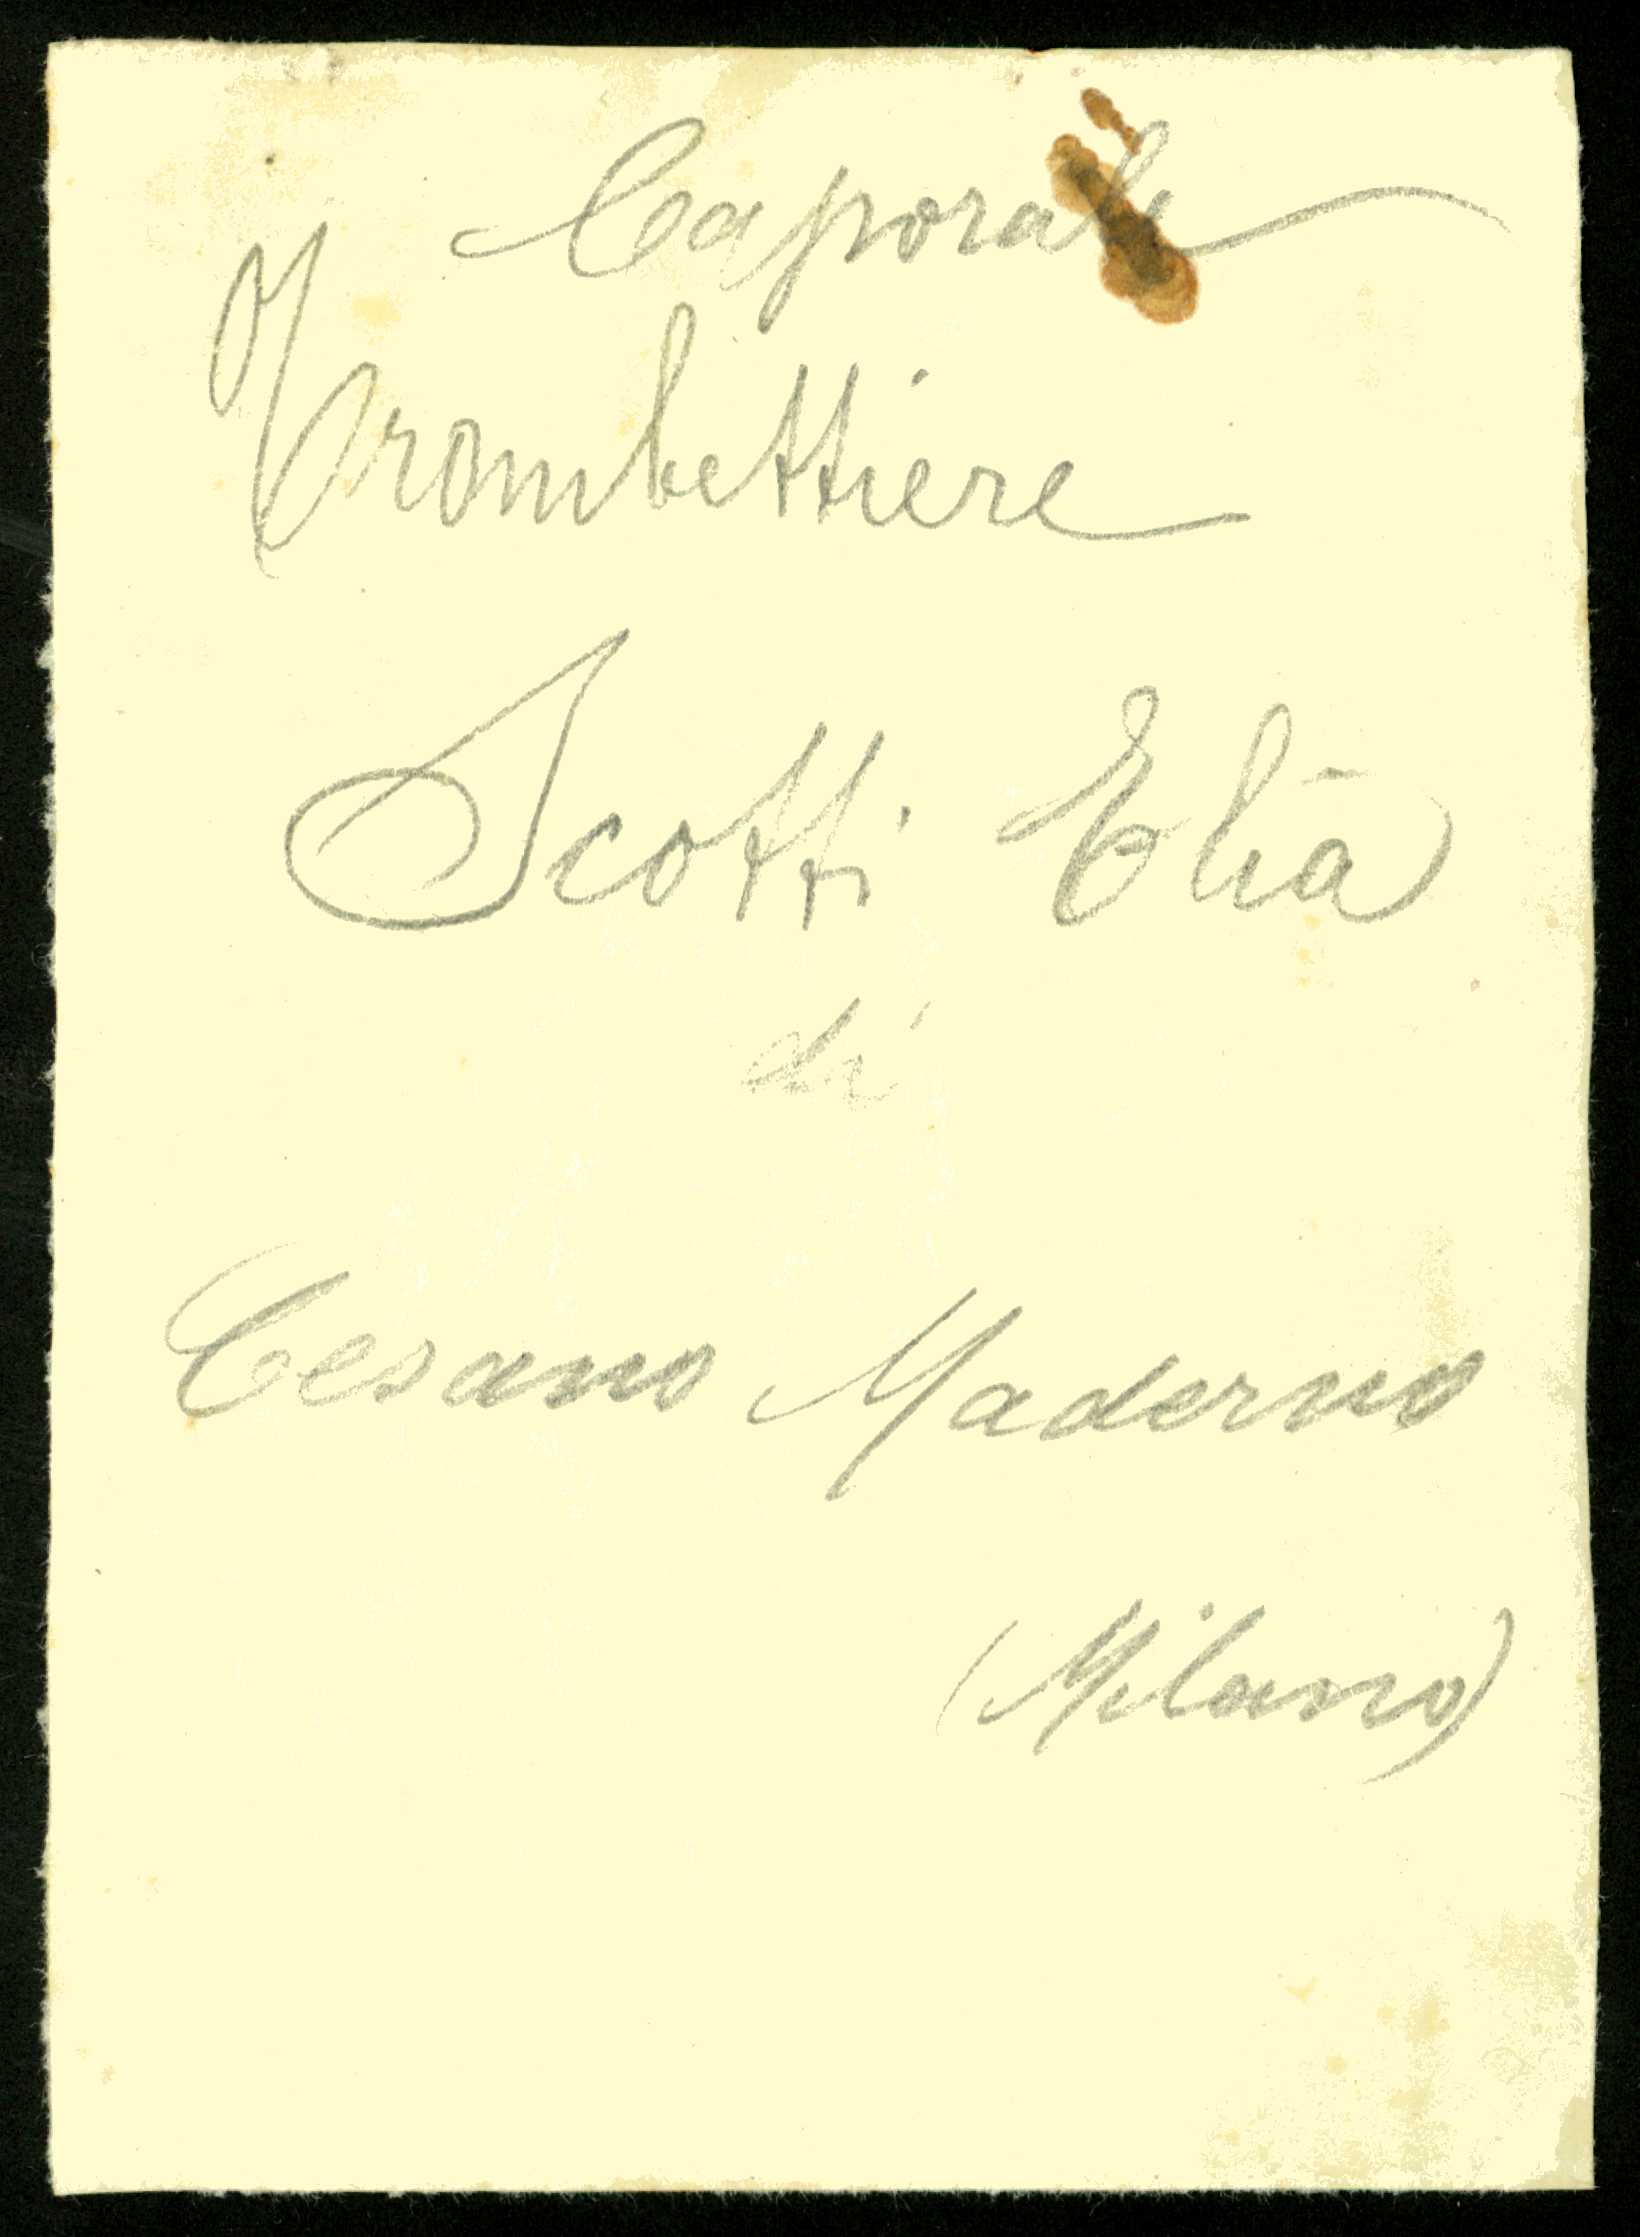 Caporale
Trombettiere
Scotti Elia
di
Cesano Maderno
(Milano)